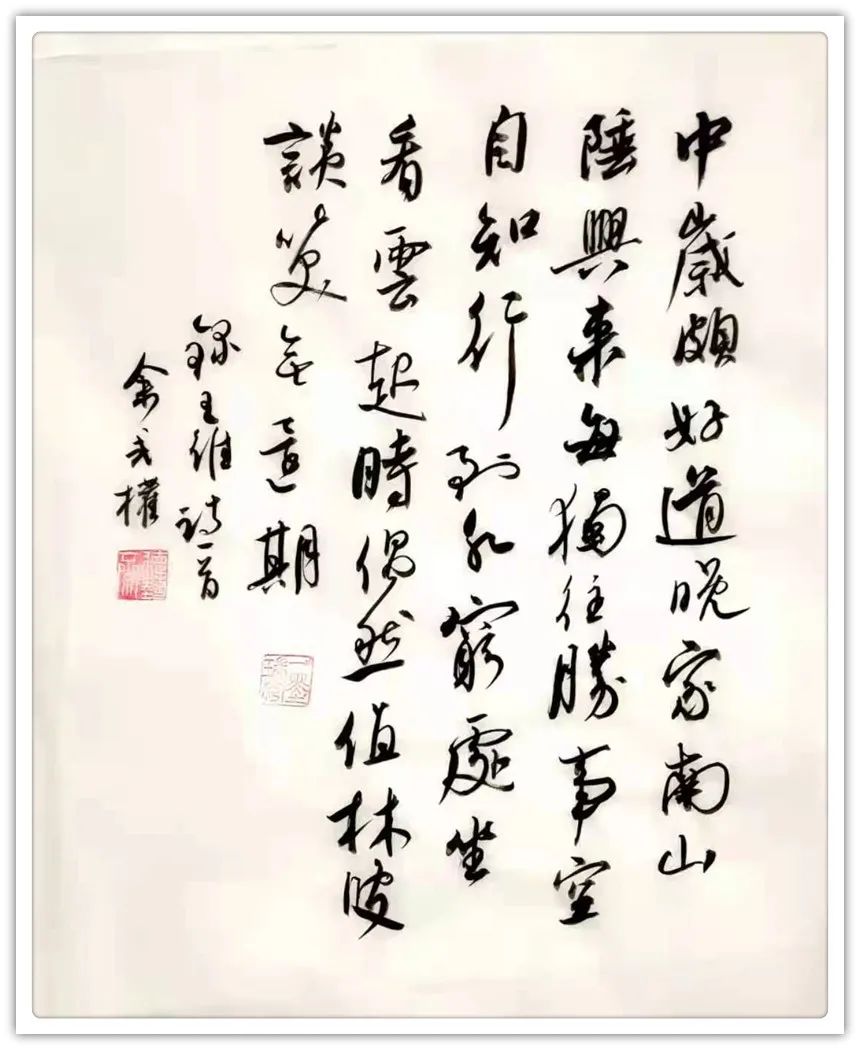 中歲頗好道晚家南山
陲興來每獨往勝事空
自知行到水窮處坐
看雲起時偶然值林叟
談笑無還期
錄王維詩一首
余成權